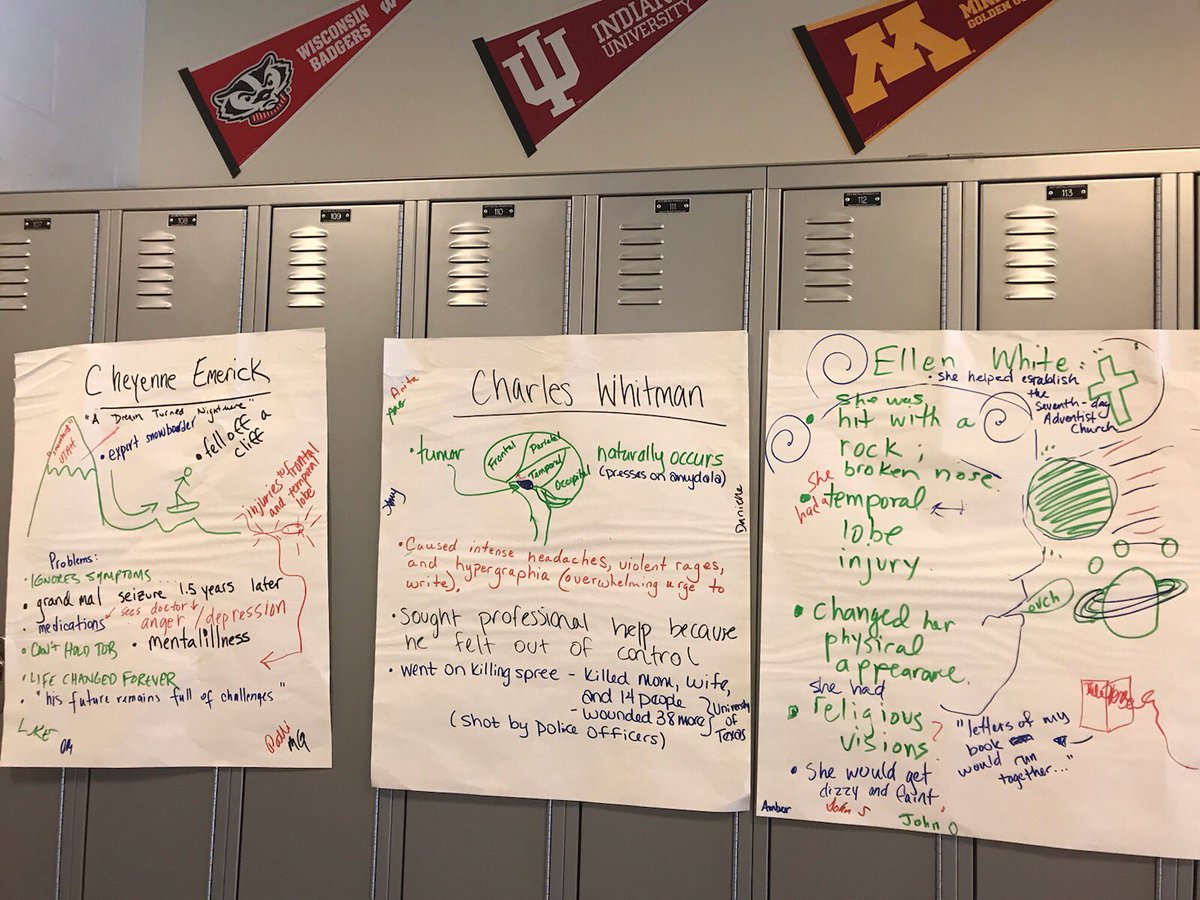 WISCONSIN
BADGERS
W
IU
INDIANA
UNIVERSITY
M
GOLDEN
107
108
109
110
111
112
113
Cheyenne Emerick
"A Dream Turned Nightmare"
UTAH
• expert snowboarder
• fell off a
cliff
injuries to frontal
and temporal
lobe
Problems:
• IGNORES SYMPTOMS...
• grand mal seizure 1.5 years later
• medications
sees doctor
anger/depression
• CAN'T HOLD JOB
• mental illness
• LIFE CHANGED FOREVER
"his future remains full of challenges"
LUKE
Anita
Charles Whitman
• tumor
Frontal
Parietal
Temporal
Occipital
naturally occurs
(presses on amydala)
Danielle
• Caused intense headaches, violent rages,
and hypergraphia (overwhelming urge to
write),
• Sought professional help because
he felt out of control
• went on killing spree - killed mom, wife,
and 14 people
- wounded 38 more
University
of
Texas
(shot by police officers)
Ellen White
• she helped establish
the
Seventh-day
Adventist
Church
• She was
hit with a
rock;
broken nose.
• She
had a
temporal
lobe
injury.
ouch
• Changed her
physical
appearance.
she had
• religious
visions?
"letters of my
book
would run
together..."
• She would get
dizzy and faint.
Amber
John S
John O